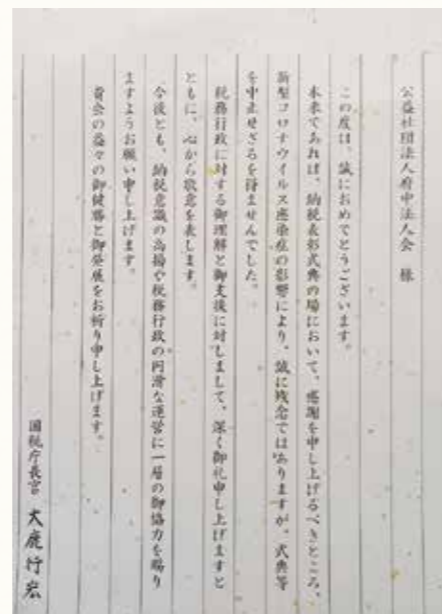 公益社団法人府中法人会 様
この度は、誠におめでとうございます。
本来であれば、納税表彰式典の場において、感謝を申し上げるべきところ、
新型コロナウイルス感染症の影響により、誠に残念ではありますが、式典等
を中止せざるを得ませんでした。
税務行政に対する御理解と御支援に対しまして、深く御礼申し上げますと
ともに、心から敬意を表します。
今後とも、納税意識の高揚や税務行政の円滑な運営に一層の御協力を賜り
ますようお願い申し上げます。
貴会の益々の御健勝と御発展をお祈り申し上げます。
国税庁長官 大鹿行宏